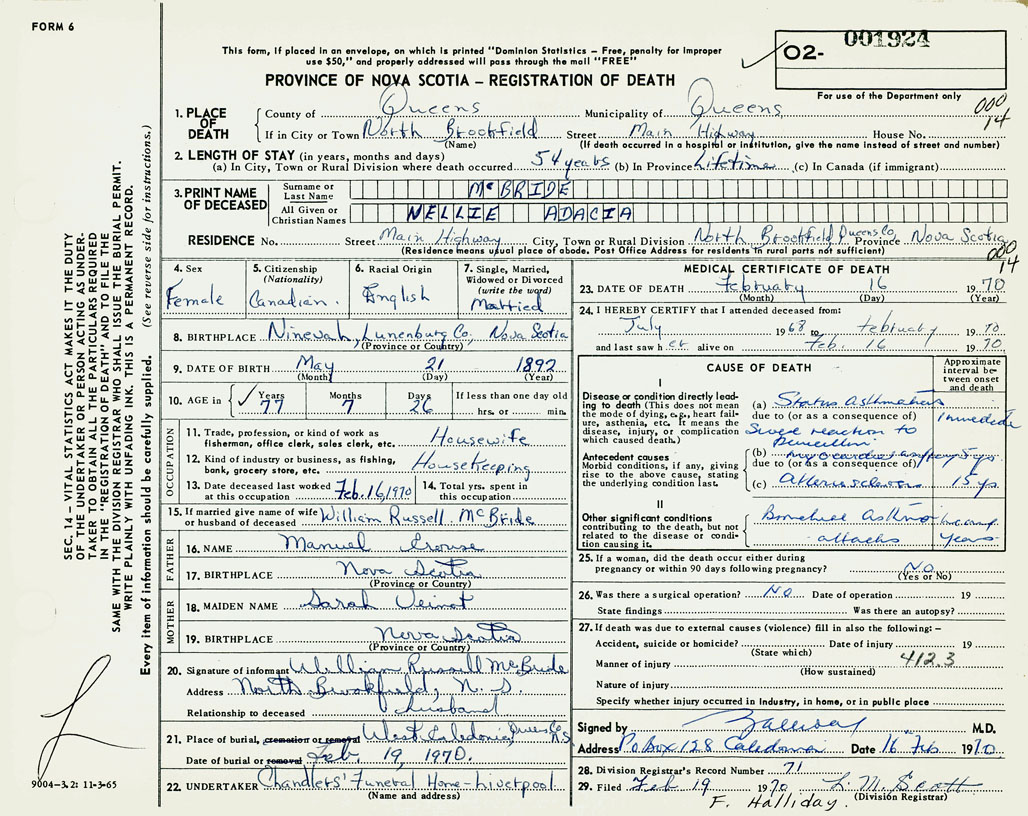 FORM 6
This form, if placed in an envelope, on which is printed "Dominion Statistics – Free, penalty for improper
use $50," and properly addressed will pass through the mail "FREE"
PROVINCE OF NOVA SCOTIA – REGISTRATION OF DEATH
O2- 001924
For use of the Department only
000
14
SEC. 14 – VITAL STATISTICS ACT MAKES IT THE DUTY
OF THE UNDERTAKER OR PERSON ACTING AS UNDER-
TAKER TO OBTAIN ALL THE PARTICULARS REQUIRED
IN THE "REGISTRATION OF DEATH" AND TO FILE THE
SAME WITH THE DIVISION REGISTRAR WHO SHALL ISSUE THE BURIAL PERMIT.
WRITE PLAINLY WITH UNFADING INK. THIS IS A PERMANENT RECORD.
Every item of information should be carefully supplied. (See reverse side for instructions.)
1. PLACE OF DEATH
County of Queens Municipality of Queens
If in City or Town North Brookfield Street Main Highway House No.
(Name) (If death occurred in a hospital or institution, give the name instead of street and number)
2. LENGTH OF STAY (in years, months and days)
(a) In City, Town or Rural Division where death occurred 54 years (b) In Province Lifetime (c) In Canada (if immigrant)
3. PRINT NAME OF DECEASED
Surname or Last Name McBRIDE
All Given or Christian Names NELLIE ADACIA
RESIDENCE No. Street Main Highway City, Town or Rural Division North Brookfield, Queens Co, Province Nova Scotia
(Residence means usual place of abode. Post Office Address for residents in rural parts not sufficient)
000
14
4. Sex Female
5. Citizenship (Nationality) Canadian.
6. Racial Origin English
7. Single, Married, Widowed or Divorced (write the word) Married
8. BIRTHPLACE Ninevah, Lunenburg Co, Nova Scotia
(Province or Country)
9. DATE OF BIRTH May 21 1892
(Month) (Day) (Year)
10. AGE in ✓ Years 77 Months 7 Days 26 If less than one day old
hrs. or min.
OCCUPATION
11. Trade, profession, or kind of work as
fisherman, office clerk, sales clerk, etc. Housewife
12. Kind of industry or business, as fishing,
bank, grocery store, etc. Housekeeping
13. Date deceased last worked
at this occupation Feb. 16, 1970
14. Total yrs. spent in
this occupation
15. If married give name of wife
or husband of deceased William Russell McBride
FATHER
16. NAME Manuel Crouse
17. BIRTHPLACE Nova Scotia
(Province or Country)
MOTHER
18. MAIDEN NAME Sarah Veinot
19. BIRTHPLACE Nova Scotia
(Province or Country)
20. Signature of informant William Russell McBride
Address North Brookfield, N. S.
Relationship to deceased husband
21. Place of burial, cremation or removal West Caledonia, Queens Co N.S.
Date of burial or removal Feb 19, 1970.
22. UNDERTAKER Chandlers' Funeral Home - Liverpool
(Name and address)
9004-3.2: 11-3-65
MEDICAL CERTIFICATE OF DEATH
23. DATE OF DEATH February 16 1970
(Month) (Day) (Year)
24. I HEREBY CERTIFY that I attended deceased from:
July 1968 to February 1970
and last saw her alive on Feb. 16 1970
CAUSE OF DEATH
Approximate interval between onset and death
I
Disease or condition directly lead-
ing to death (This does not
mean the mode of dying, e.g., heart fail-
ure, asthenia, etc. It means the
disease, injury, or complication
which caused death.)
(a) Status asthmaticus
due to (or as a consequence of) immediate
Severe reaction to
Penicillin
Antecedent causes
Morbid conditions, if any, giving
rise to the above cause, stating
the underlying condition last.
(b)
due to (or as a consequence of)
(c) 15 ys
II
Other significant conditions
contributing to the death, but not
related to the disease or condi-
tion causing it.
Bronchial Asthma
attacks years
25. If a woman, did the death occur either during
pregnancy or within 90 days following pregnancy? NO
(Yes or No)
26. Was there a surgical operation? NO Date of operation 19
State findings Was there an autopsy?
27. If death was due to external causes (violence) fill in also the following: –
Accident, suicide or homicide? Date of injury 19
(State which)
412.3
Manner of injury
(How sustained)
Nature of injury
Specify whether injury occurred in industry, in home, or in public place
Signed by M.D.
Address P.O Box 128 Caledonia Date 16 Feb 1970
28. Division Registrar's Record Number 71
29. Filed Feb 19 1970 L. M. Scott
(Division Registrar)
F. Halliday.